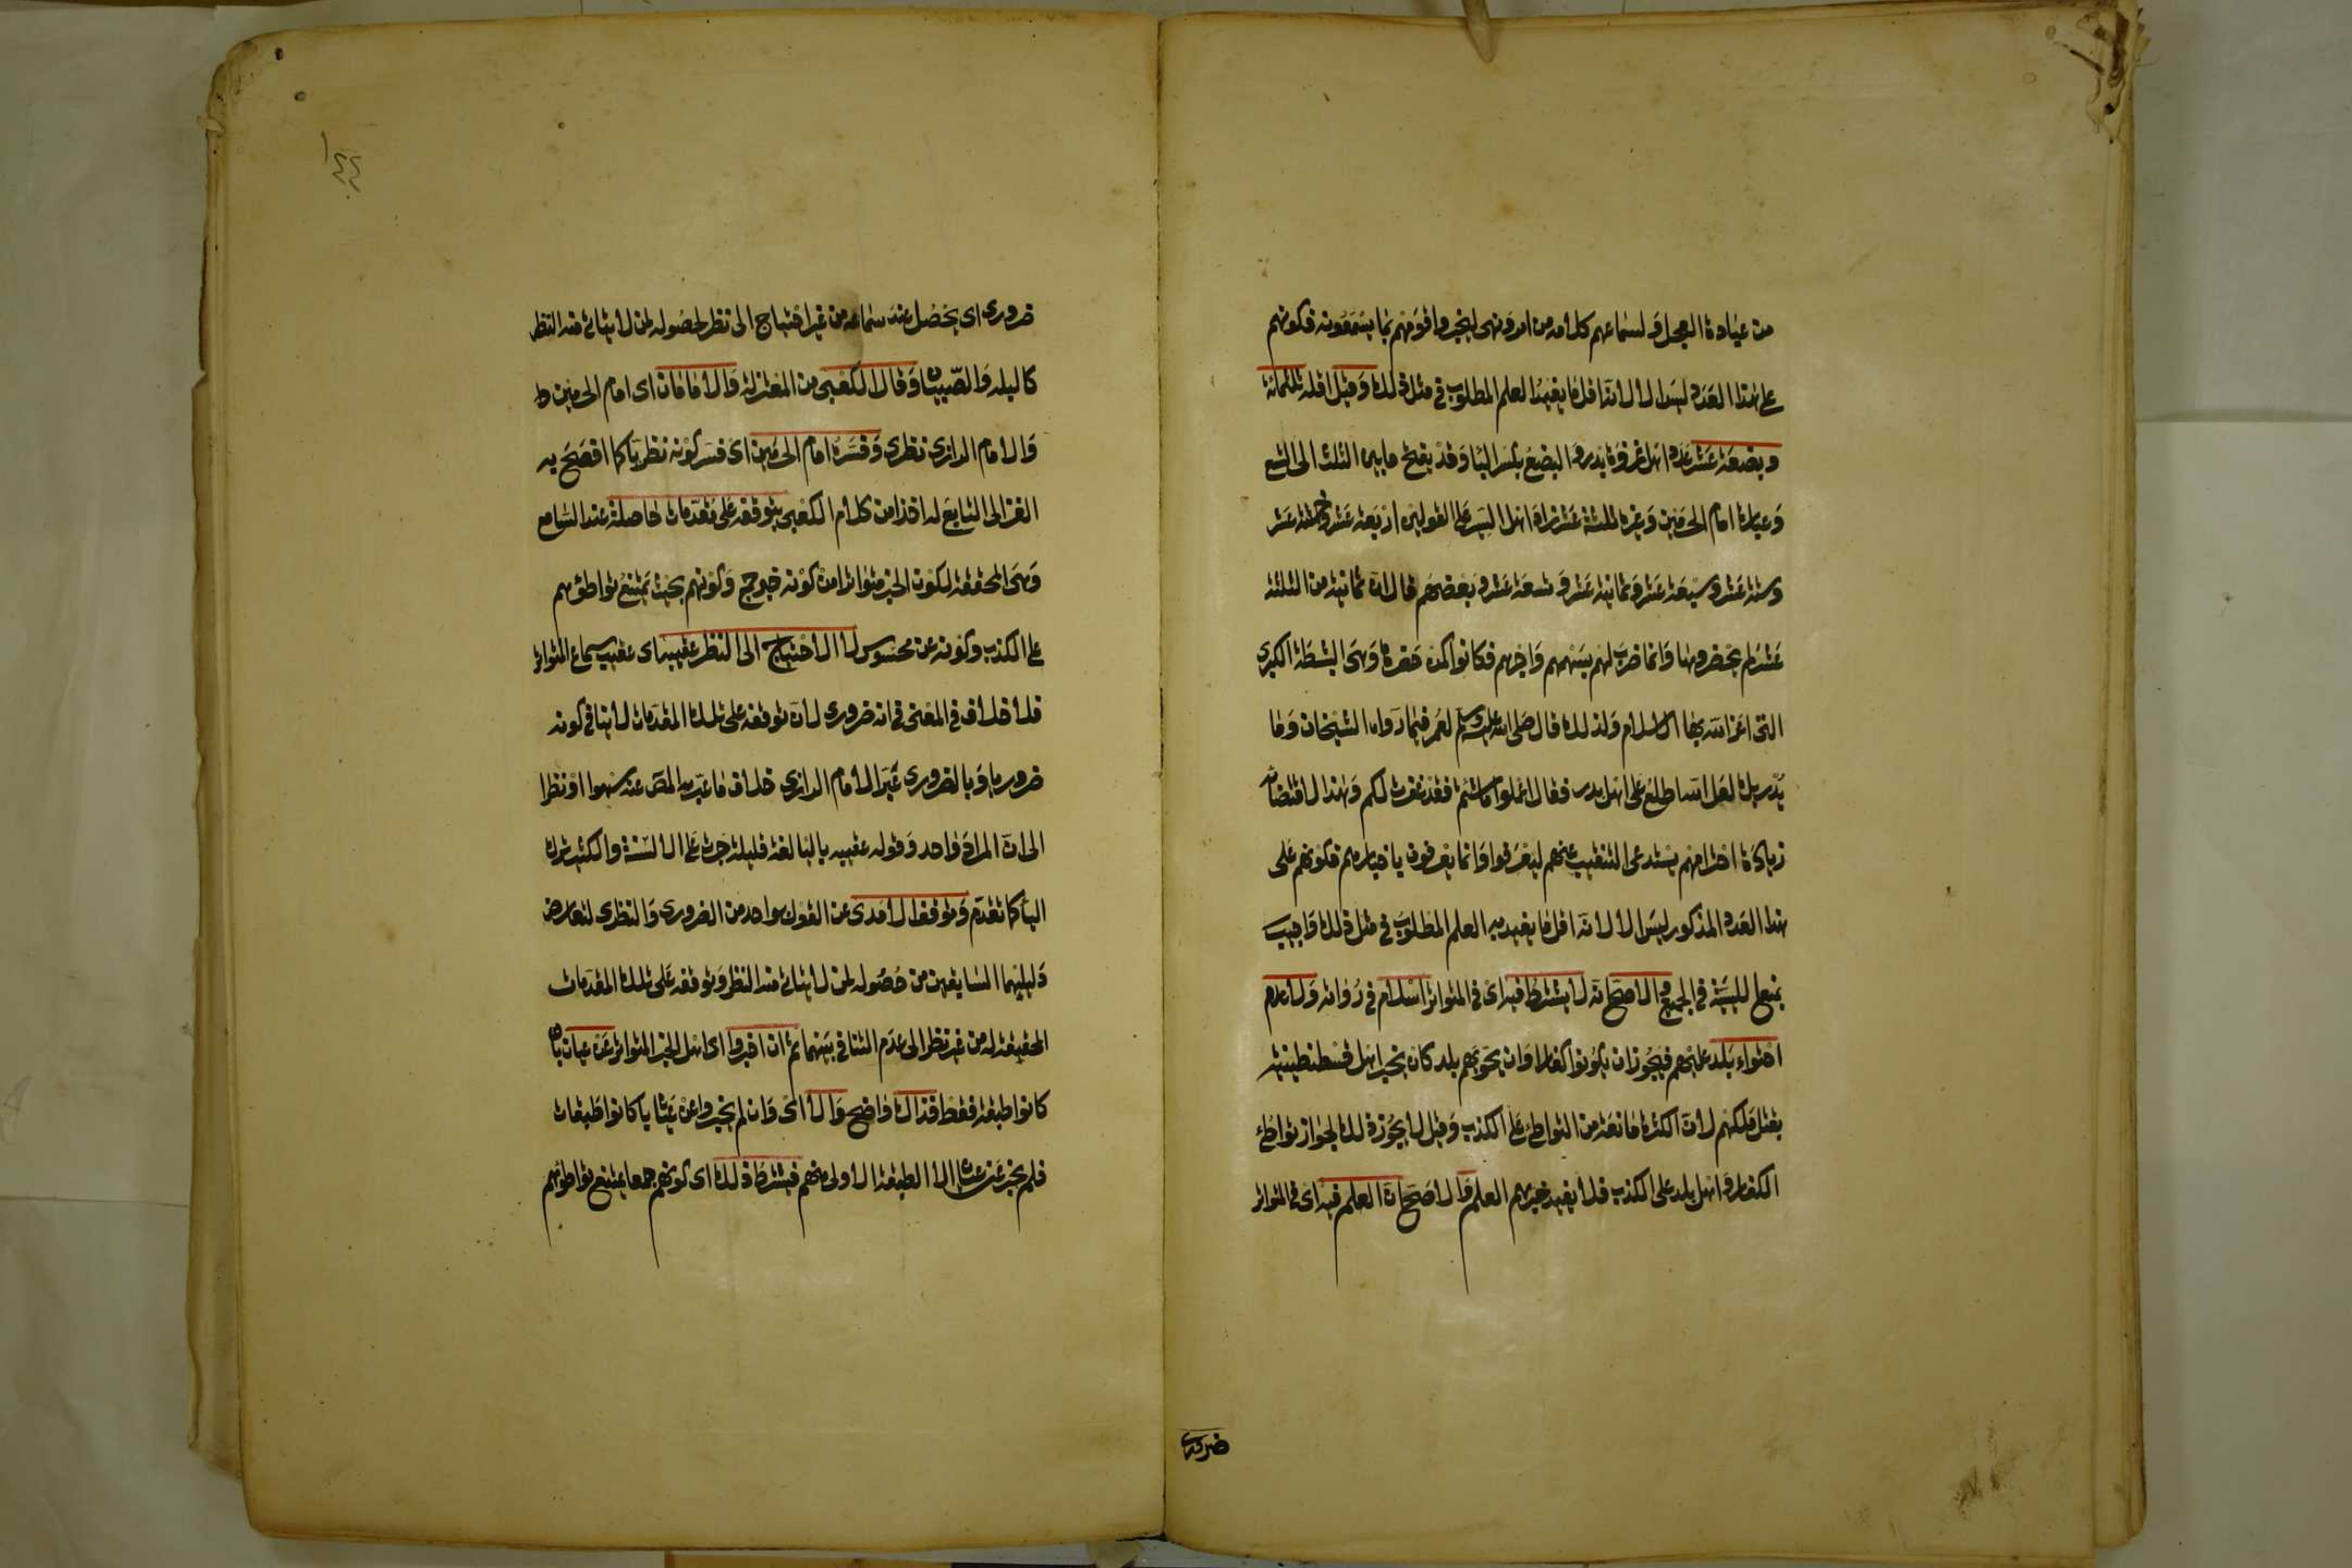 من عبادة العجل ولسماعهم كلامه من امر ونهى ليخبروا قومهم بما يسمعونه فكونهم
على هذا العدد ليس الا لانه اقل ما يفيد العلم المطلوب في مثل ذلك وقيل اقله ثلثمائة
وبضعة عشر عدد اهل غزوة بدر والبضع بكسر البا وقد يفتح ما بين الثلث الى التسع
وعبارة امام الحرمين وغيره ثلثة عشر وزاد اهل السير على القولين اربعة عشر وخمسة عشر
وستة عشر وسبعة عشر وثمانية عشر وتسعة عشر وبعضهم قال ان ثمانية من الثلثة
عشر لم يحضروها وانما ضرب لهم بسهمهم واجرهم فكانوا كمن حضرها وهى البطشة الكبرى
التى اعز الله بها الاسلام ولذلك قال صلى الله عليه وسلم لعمر فيما رواه الشيخان وما
يدريك لعل الله اطلع على اهل بدر فقال اعملوا ما شئتم فقد غفرت لكم وهذا لاقتضائه
زيادة احترامهم يستدعى التنقيب عنهم ليعرفوا وانما يعرفون باخبارهم فكونهم على
هذا العدد المذكور ليس الا لانه اقل ما يفيد به العلم المطلوب في مثل ذلك واجيب
بمنع الليسية في الجميع والاصح انه لا يشترط فيه اى في المتواتر اسلام في رواته ولا عدم
احتواء بلد عليهم فيجوز ان يكونوا كفارا وان يحويهم بلد كان يخبر اهل قسطنطينية
بقتل ملكهم لان الكثرة مانعة من التواطئ على الكذب وقيل لا يجوز ذلك لجواز تواطئ
الكفار واهل بلد على الكذب فلا يفيد خبرهم العلم والاصح ان العلم فيه اى في المتواتر
ضرورى
ضرورى اى يحصل عند سماعه من غير احتياج الى نظر لحصوله لمن لا يتاتى منه النظر
كالبله والصبيان وقال الكعبى من المعتزلة والامامان اى امام الحرمين
والامام الرازى نظرى وفسره امام الحرمين اى فسر كونه نظريا كما افصح به
الغزالى التابع له اخذا من كلام الكعبى بتوقفه على مقدمات حاصلة عند السامع
وهى المحققة لكون الخبر متواترا من كونه خبر جمع وكونهم بحيث يمتنع تواطؤهم
على الكذب وكونه عن محسوس لا الاحتياج الى النظر عقيبه اى عقيب سماع المتواتر
فلا خلاف في المعنى في انه ضرورى لان توقفه على تلك المقدمات لا ينافى كونه
ضروريا وبالضرورى عبر الامام الرازى خلاف ما عبر به المص عنه سهوا او نظرا
الى ان المراد واحد وقوله عقيبه باليا لغة قليلة جرت على الالسنة والكثير ترك
اليا كما تقدم وتوقف الامدى عن القول بواحد من الضرورى والنظرى لتعارض
دليليهما السابقين من حصوله لمن لا يتاتى منه النظر وتوقفه على تلك المقدمات
المحققة له من غير نظر الى عدم التنافى بينهما ثم ان اخبروا اى اهل الخبر المتواتر عن عيان بان
كانوا طبقة فقط فذاك واضح والا اى وان لم يخبروا عن عيان بان كانوا طبقات
فلم يخبر عن عيان الا الطبقة الاولى منهم فيشترط ذلك اى كونهم جمعا يمتنع تواطؤهم